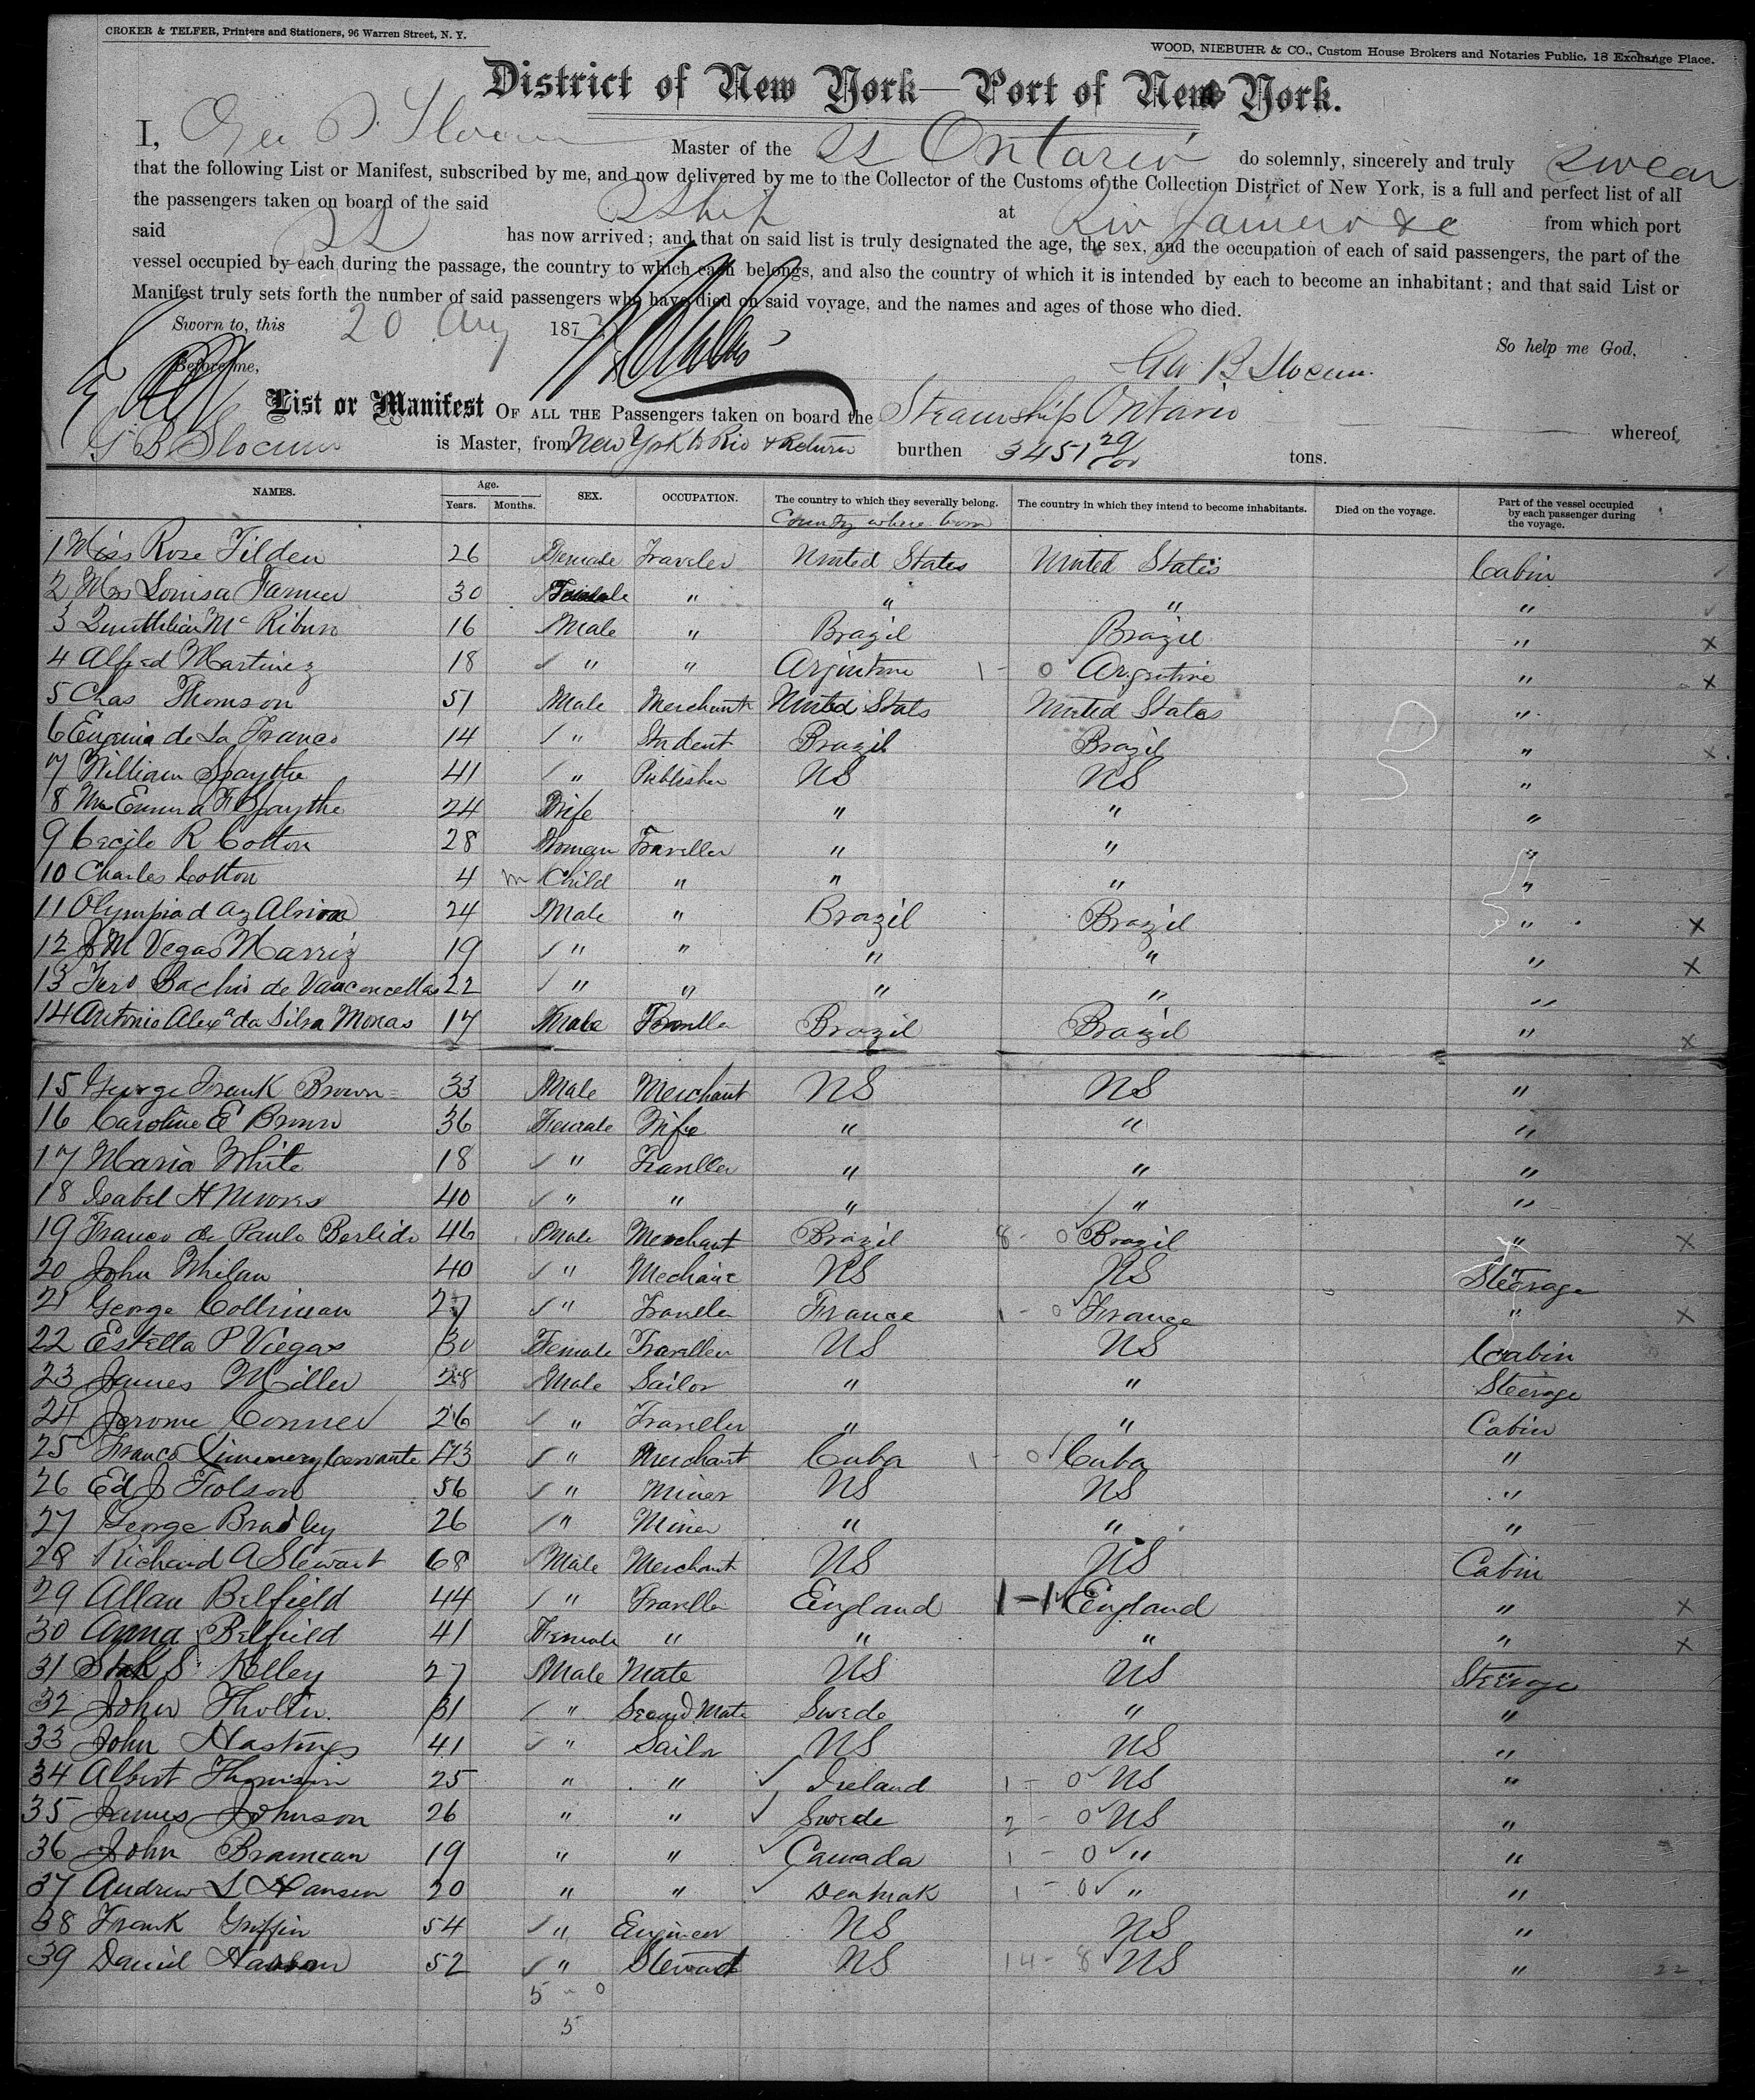 CROKER & TELFER, Printers and Stationers, 96 Warren Street, N. Y.
WOOD, NIEBUHR & CO., Custom House Brokers and Notaries Public, 18 Exchange Place.
District of New York—Port of New York.
I, Geo B. Slocum Master of the SS Ontario do solemnly, sincerely and truly swear
that the following List or Manifest, subscribed by me, and now delivered by me to the Collector of the Customs of the Collection District of New York, is a full and perfect list of all
the passengers taken on board of the said SShip at Rio Janeiro &c from which port
said SS has now arrived; and that on said list is truly designated the age, the sex, and the occupation of each of said passengers, the part of the
vessel occupied by each during the passage, the country to which each belongs, and also the country of which it is intended by each to become an inhabitant; and that said List or
Manifest truly sets forth the number of said passengers who have died on said voyage, and the names and ages of those who died.
Sworn to, this 20 Aug 187
So help me God,
Before me,
Geo B Slocum
List or Manifest OF ALL THE Passengers taken on board the Steamship Ontario whereof,
G B Slocum is Master, from New York to Rio & Return burthen 3451 29/100 tons.
NAMES. Age. Years. Months. SEX. OCCUPATION. The country to which they severally belong. The country in which they intend to become inhabitants. Died on the voyage. Part of the vessel occupied by each passenger during the voyage.
Country where born
1 Miss Rose Tilden 26 Female Traveler United States United States Cabin
2 Mrs Louisa Farmer 30 Female " " " "
3 Mc 16 Male " Brazil Brazil " x
4 Alfred Martinez 18 " " Argintine 1 - 0 Argentine " x
5 Chas Thomson 51 Male Merchant United Stats United States "
6 Eugenia de La Franco 14 " Student Brazil Brazil " x
7 William Spaythe 41 " Publisher US US "
8 Mrs Emma F Spaythe 24 Wife " " "
9 Cecile R Cotton 28 Woman Traveller " " "
10 Charles Cotton 4 m Child " " " "
11 Olympia d 24 Male " Brazil Brazil " x
12 J M Vegas 19 " " " " " x
13 de Vasconcellas 22 " " " " "
14 Antonio Alexa da Silva 17 Male Traveller Brazil Brazil " x
15 George Frank Brown 33 Male Merchant US US "
16 Caroline E Brown 36 Female Wife " " "
17 Maria White 18 " Traveller " " "
18 Isabel H Moores 40 " " " " "
19 Franco de Paulo 46 Male Merchant Brazil 8 - 0 Brazil " x
20 John Whilan 40 " Mechanic US US Steerage
21 George 27 " Traveller France 1 - 0 France " x
22 Estella P Viegas 30 Female Traveller US US Cabin
23 James Miller 28 Male Sailor " " Steerage
24 Jerome Conner 26 " Traveller " " Cabin
25 Franco 43 " Merchant Cuba 1 - 0 Cuba "
26 Ed J Folsom 56 " Miner US US "
27 George Bradley 26 " Miner " " "
28 Richard A Stewart 68 Male Merchant US US Cabin
29 Allan Belfield 44 " Traveller England 1-1 England " x
30 Anna Belfield 41 Female " " " " x
31 S Kelley 27 Male Mate US US Steerage
32 John 31 " Second Mate Swede " "
33 John Hastings 41 " Sailor US US "
34 Albert Thomson 25 " " Ireland 1 - 0 US "
35 James Johnson 26 " " Swede 2 - 0 US "
36 John 19 " " Canada 1 - 0 " "
37 Andrew L Hansen 20 " " Denmak 1 - 0 " "
38 Frank Griffin 54 " Engineer US US "
39 Daniel 52 " Steward US 14 - 8 US " 22
5 - 0
5